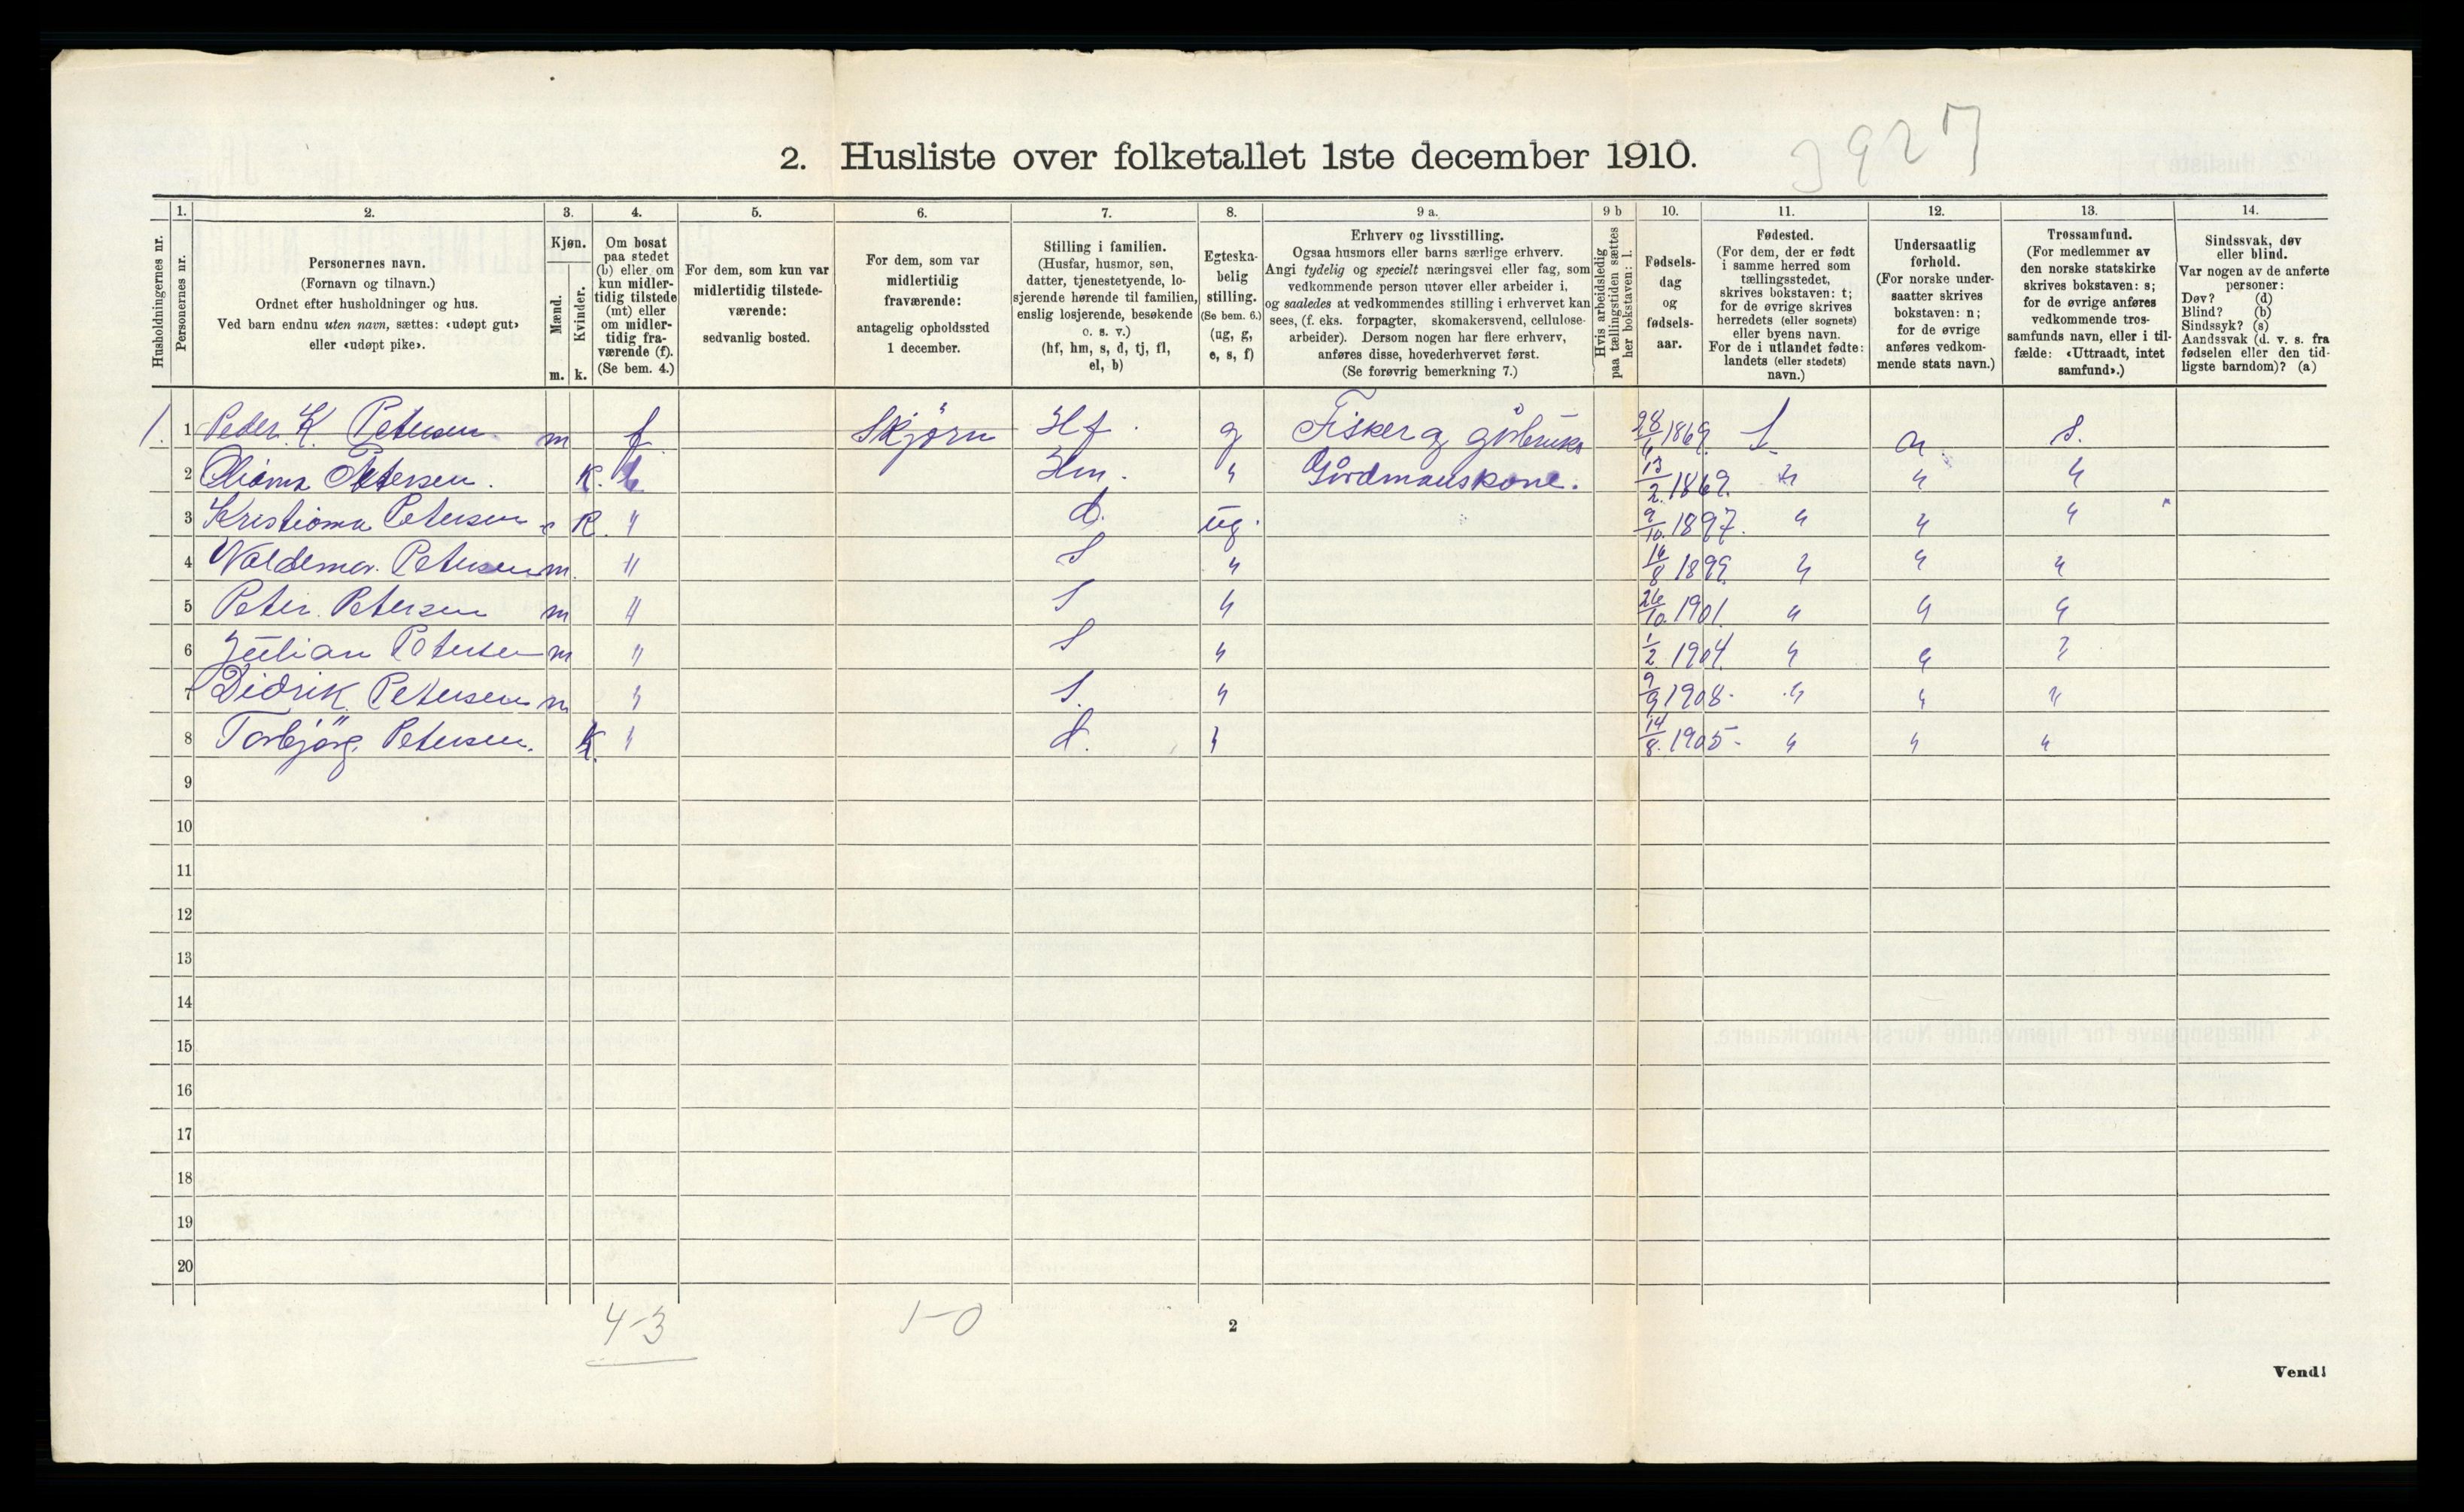 3927
2. Husliste over folketallet 1ste december 1910.
Husholdningernes nr.
1. Personernes nr.
2. Personernes navn.
(Fornavn og tilnavn.)
Ordnet efter husholdninger og hus.
Ved barn endnu uten navn, sættes: «udøpt gut»
eller «udøpt pike».
3. Kjøn.
Mænd. m.
Kvinder. k.
4. Om bosat
paa stedet
(b) eller om
kun midler-
tidig tilstede
(mt) eller
om midler-
tidig fra-
værende (f).
(Se bem. 4.)
5. For dem, som kun var
midlertidig tilstede-
værende:
sedvanlig bosted.
6. For dem, som var
midlertidig
fraværende:
antagelig opholdssted
1 december.
7. Stilling i familien.
(Husfar, husmor, søn,
datter, tjenestetyende, lo-
sjerende hørende til familien,
enslig losjerende, besøkende
o. s. v.)
(hf, hm, s, d, tj, fl,
el, b)
8. Egteska-
belig
stilling.
(Se bem. 6.)
(ug, g,
e, s, f)
9 a. Erhverv og livsstilling.
Ogsaa husmors eller barns særlige erhverv.
Angi tydelig og specielt næringsvei eller fag, som
vedkommende person utøver eller arbeider i,
og saaledes at vedkommendes stilling i erhvervet kan
sees, (f. eks. forpagter, skomakersvend, cellulose-
arbeider). Dersom nogen har flere erhverv,
anføres disse, hovederhvervet først.
(Se forøvrig bemerkning 7.)
9 b Hvis arbeidsledig
paa tællingstiden sættes
her bokstaven: l.
10. Fødsels-
dag
og
fødsels-
aar.
11. Fødested.
(For dem, der er født
i samme herred som
tællingsstedet,
skrives bokstaven: t;
for de øvrige skrives
herredets (eller sognets)
eller byens navn.
For de i utlandet fødte:
landets (eller stedets)
navn.)
12. Undersaatlig
forhold.
(For norske under-
saatter skrives
bokstaven: n;
for de øvrige
anføres vedkom-
mende stats navn.)
13. Trossamfund.
(For medlemmer av
den norske statskirke
skrives bokstaven: s;
for de øvrige anføres
vedkommende tros-
samfunds navn, eller i til-
fælde: «Uttraadt, intet
samfund».)
14. Sindssvak, døv
eller blind.
Var nogen av de anførte
personer:
Døv? (d)
Blind? (b)
Sindssyk? (s)
Aandssvak (d. v. s. fra
fødselen eller den tid-
ligste barndom)? (a)
1. 1 Peder. K. Petersen m f Skjørn Hf. g Fisker og 1869. n. s.
2 Petersen. K. b Hm. " Gårdmanskone. 13/2. 1869. " " "
3 Petersen K. " d. ug. 9/10. 1897. " " "
4 Valdemar. Petersen m. " S " 8 1899. " " "
5 Peter. Petersen m " S " 26/10. 1901. " " "
6 Julian Petersen m " S " 1/2 1904. " " "
7 Didrik. Petersen m " S. " 9/9 1908. " " "
8 Torbjörg. Petersen. K. " d. " 14/8. 1905. " " "
9
10
11
12
13
14
15
16
17
18
19
20
4-3 1-0
2
Vend!